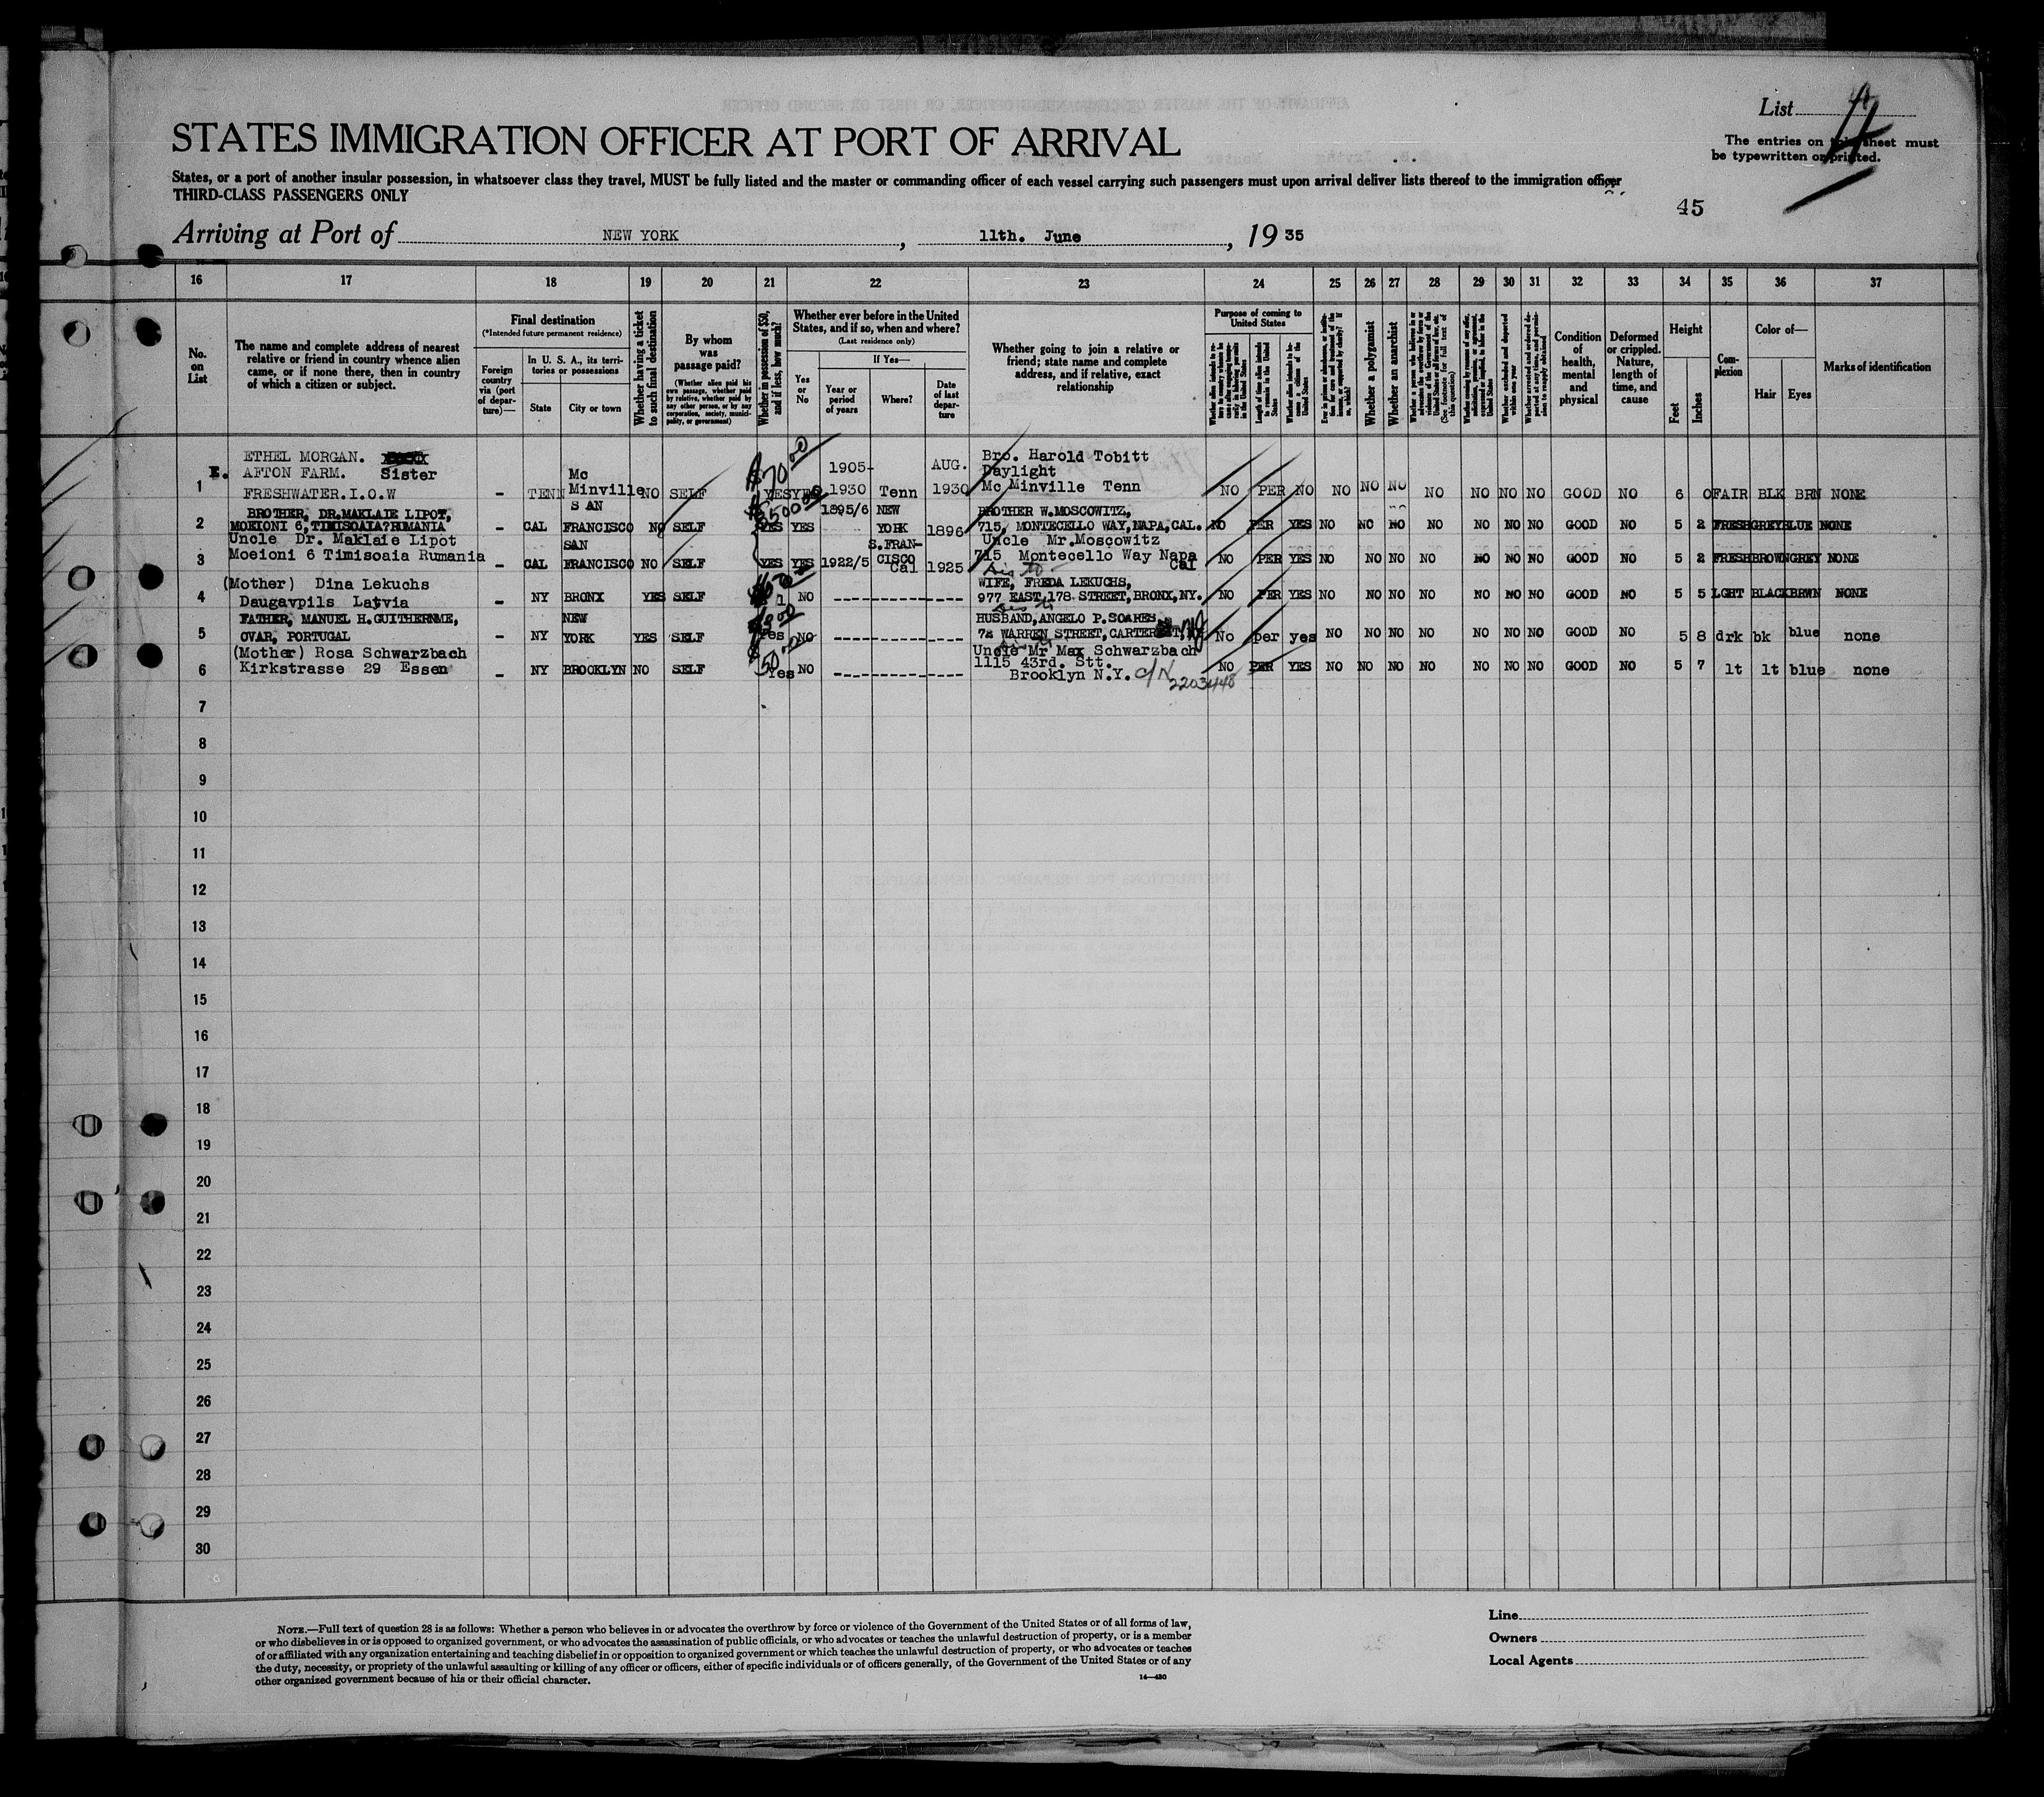 List 4
The entries on this sheet must
be typewritten or printed.
STATES IMMIGRATION OFFICER AT PORT OF ARRIVAL
States, or a port of another insular possession, in whatsoever class they travel, MUST be fully listed and the master or commanding officer of each vessel carrying such passengers must upon arrival deliver lists thereof to the immigration officer
THIRD-CLASS PASSENGERS ONLY
45
Arriving at Port of NEW YORK, 11th. June, 1935
16 17 18 19 20 21 22 23 24 25 26 27 28 29 30 31 32 33 34 35 36 37
No. on List
The name and complete address of nearest relative or friend in country whence alien came, or if none there, then in country of which a citizen or subject.
Final destination
(*Intended future permanent residence)
Foreign country via (port of departure)—
In U. S. A., its territories or possessions
State
City or town
Whether having a ticket to such final destination
By whom was passage paid?
(Whether alien paid his own passage, whether paid by relative, whether paid by any other person, or by any corporation, society, municipality, or government)
Whether in possession of $50, and if less, how much?
Whether ever before in the United States, and if so, when and where?
(Last residence only)
Yes or No
If Yes—
Year or period of years
Where?
Date of last departure
Whether going to join a relative or friend; state name and complete address, and if relative, exact relationship
Purpose of coming to United States
Length of time alien intends to remain in the United States
Whether alien intends to become a citizen of the United States
Whether a polygamist
Whether an anarchist
(See footnote for full text of this question)
Whether excluded and deported within one year
Condition of health, mental and physical
Deformed or crippled. Nature, length of time, and cause
Height
Feet
Inches
Complexion
Color of—
Hair
Eyes
Marks of identification
ETHEL MORGAN.
AFTON FARM. Sister
1 FRESHWATER.I.O.W – TENN Mc Minville NO SELF $70 00 YES YES 1905-1930 Tenn AUG. 1930 Bro. Harold Tobitt
Daylight
Mc Minville Tenn NO PER NO NO NO NO NO NO NO NO GOOD NO 6 0 FAIR BLK BRN NONE
BROTHER, DR.MAKLAIE LIPOT,
2 MOEIONI 6,TIMISOAIA?RUMANIA – CAL S AN FRANCISCO NO SELF YES YES 1895/6 NEW YORK 1896 BROTHER W.MOSCOWITZ,
715, MONTECELLO WAY,NAPA,CAL. NO PER YES NO NO NO NO NO NO NO GOOD NO 5 2 FRESH GREY BLUE NONE
Uncle Dr. Maklaie Lipot
3 Moeioni 6 Timisoaia Rumania – CAL SAN FRANCISCO NO SELF YES YES 1922/5 S.FRANCISCO Cal 1925 Uncle Mr.Moscowitz
715 Montecello Way Napa Cal NO PER YES NO NO NO NO NO NO NO GOOD NO 5 2 FRESH BROWN GREY NONE
(Mother) Dina Lekuchs
4 Daugavpils Latvia – NY BRONX YES SELF NO WIFE, FREDA LEKUCHS,
977 EAST,178 STREET,BRONX,NY. NO PER YES NO NO NO NO NO NO NO GOOD NO 5 5 LGHT BLACK BRWN NONE
FATHER, MANUEL H.GUITHERNME,
5 OVAR, PORTUGAL – NY NEW YORK YES SELF Yes NO HUSBAND,ANGELO P.SOARES,
72 WARREN STREET, No per yes NO NO NO NO NO NO NO GOOD NO 5 8 drk bk blue none
(Mother) Rosa Schwarzbach
6 Kirkstrasse 29 Essen – NY BROOKLYN NO SELF Yes NO Uncle Mr Max Schwarzbach
1115 43rd. Stt.
Brooklyn N.Y. C/N 2203448 NO PER YES NO NO NO NO NO NO NO GOOD NO 5 7 lt lt blue none
7
8
9
10
11
12
13
14
15
16
17
18
19
20
21
22
23
24
25
26
27
28
29
30
NOTE.—Full text of question 28 is as follows: Whether a person who believes in or advocates the overthrow by force or violence of the Government of the United States or of all forms of law,
or who disbelieves in or is opposed to organized government, or who advocates the assassination of public officials, or who advocates or teaches the unlawful destruction of property, or is a member
of or affiliated with any organization entertaining and teaching disbelief in or opposition to organized government or which teaches the unlawful destruction of property, or who advocates or teaches
the duty, necessity, or propriety of the unlawful assaulting or killing of any officer or officers, either of specific individuals or of officers generally, of the Government of the United States or of any
other organized government because of his or their official character.
14—430
Line
Owners
Local Agents